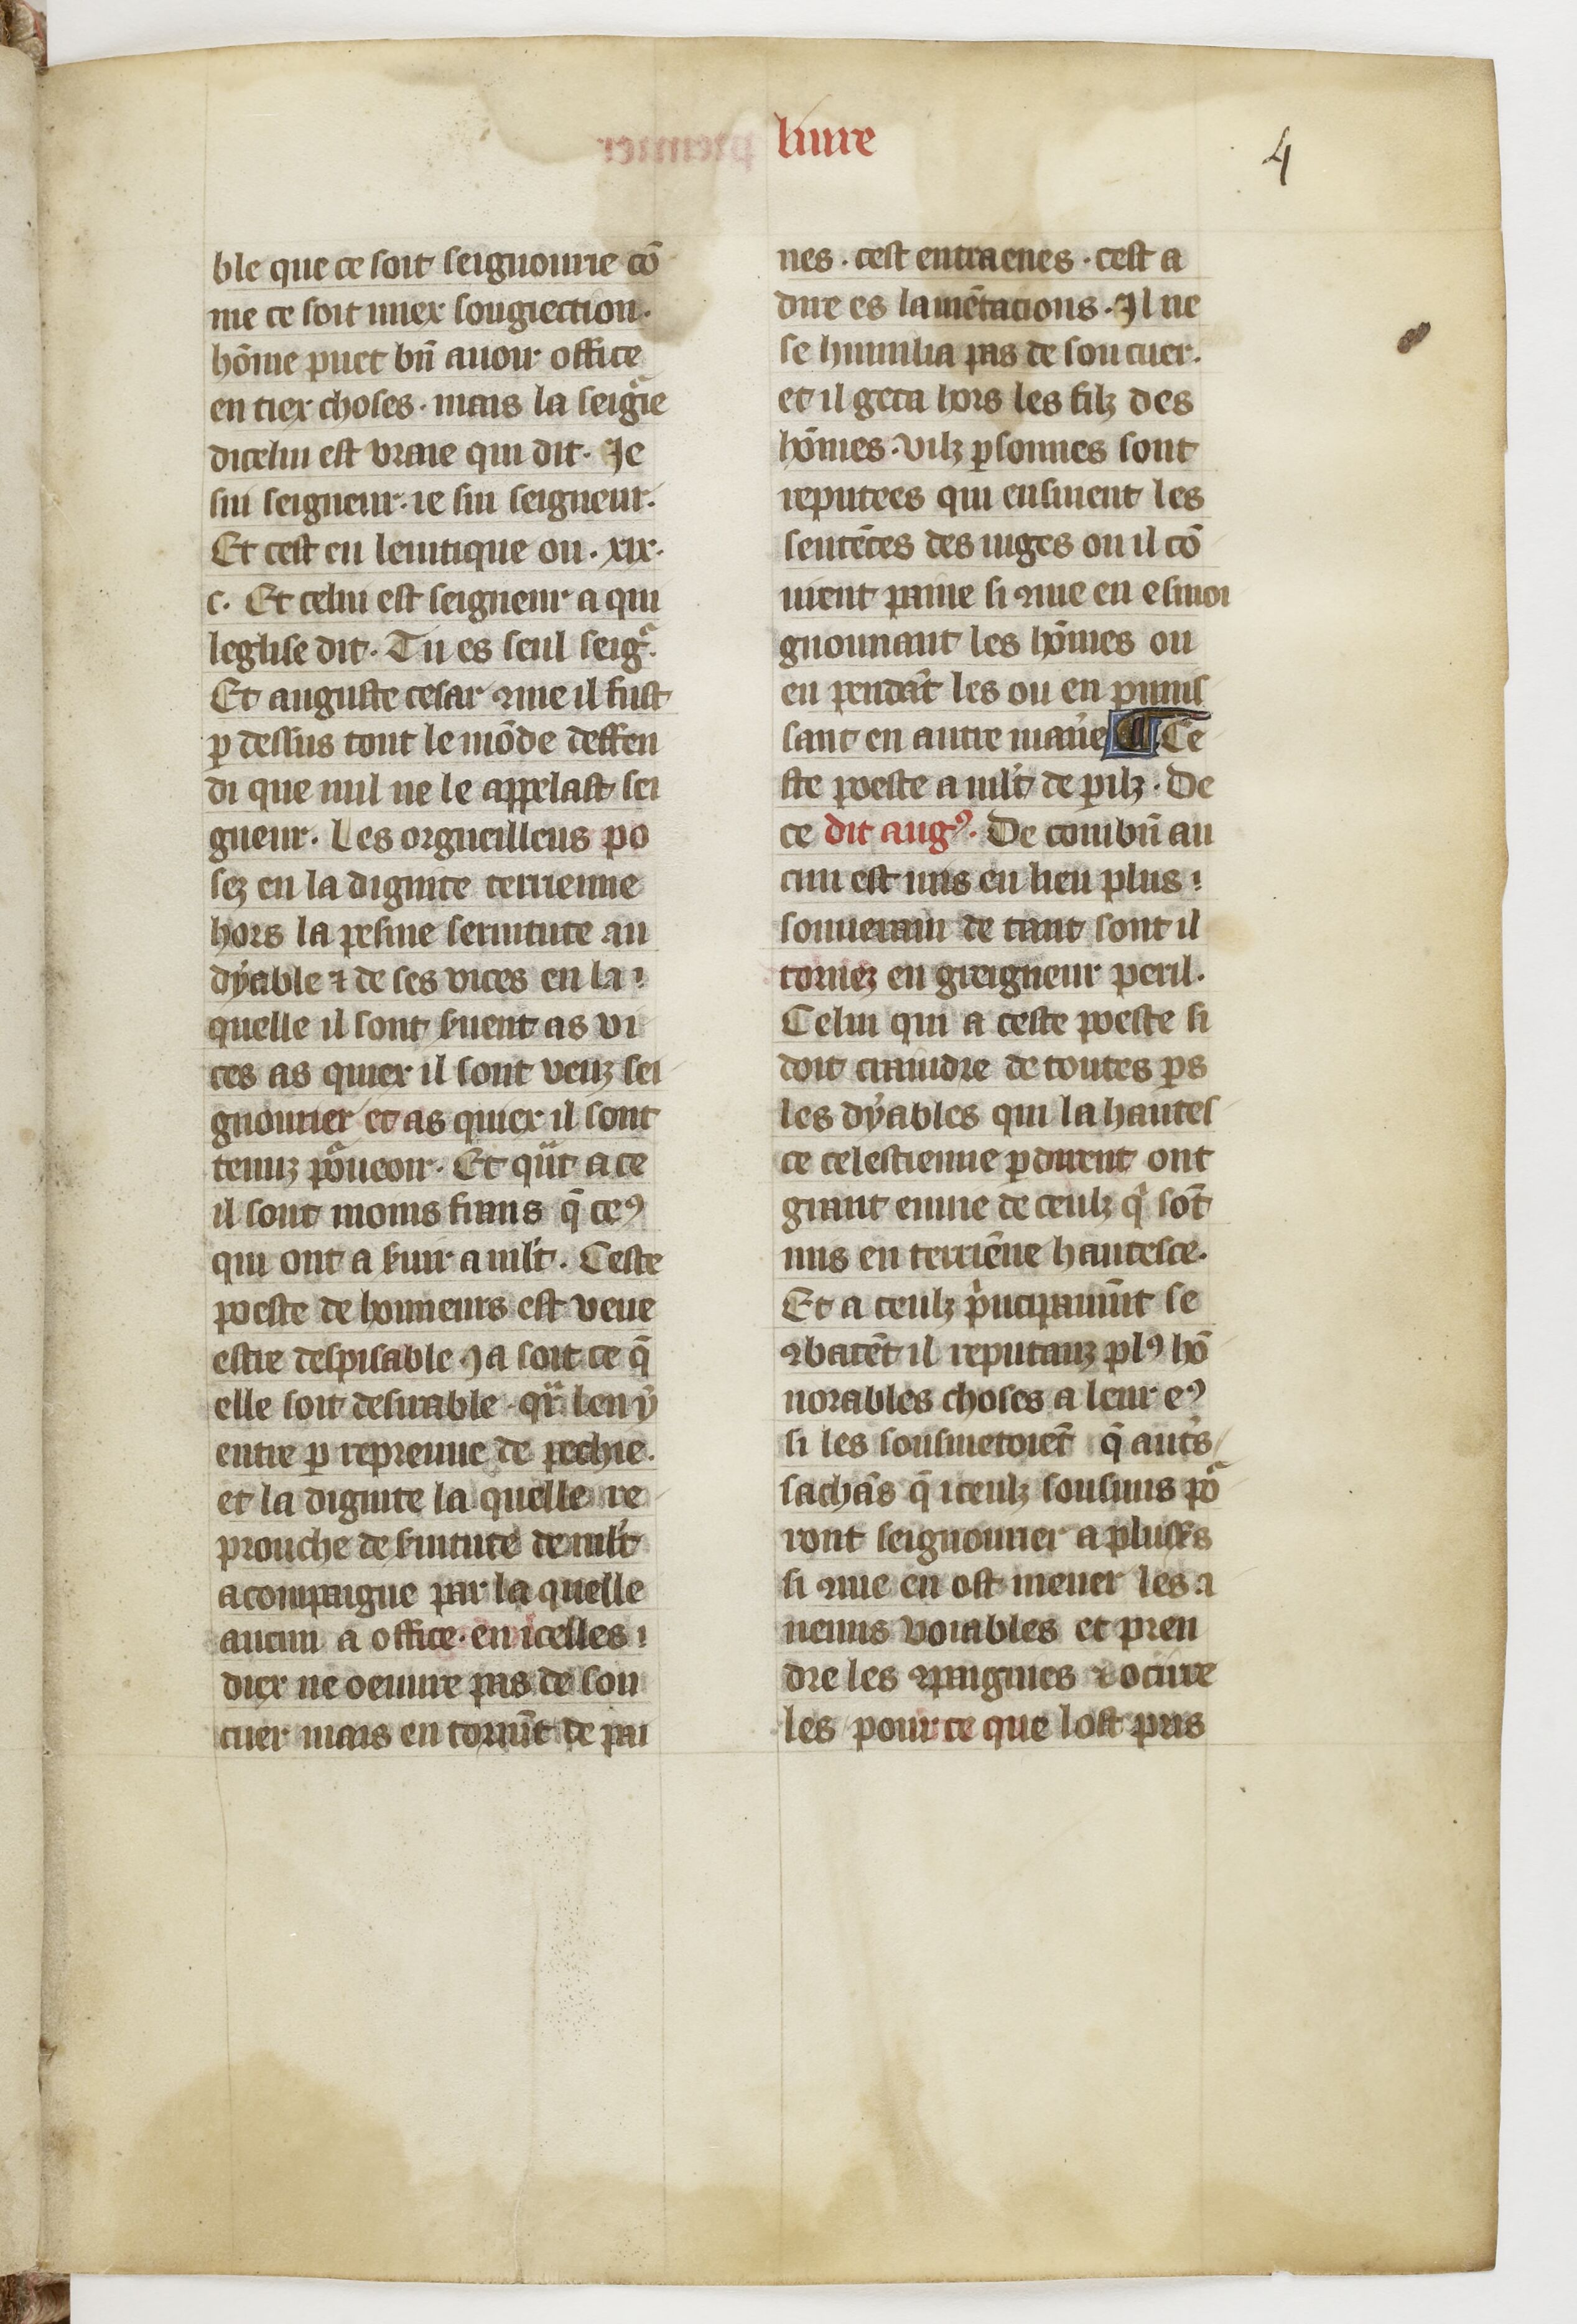 liure
4
ble que ce soit seignourie cō
me ce soit miex sougiection.
hōme puet bñ auoir office
en tiex choses. mais la seigͣie
dicelui est vraie qui dit. Je
sui seigneur. ie sui seigneur.
Et cest en leuitique ou. xix.
c. Et celui est seigneur a qui
leglise dit. Tu es seul seigͬ.
Et auguste cesar ꝯme il fust
ꝑ dessus tout le mōde deffen
di que nul ne le appelast sei
gneur. Les orgueilleus po
sez en la dignite terrienne
hors la pesme seruitute au
dyable ⁊ de ses vices en la
quelle il sont ẜuent as vi
ces as quiex il sont veuz sei
gnourier et as quiex il sont
tenuz poͬueoir. Et qͣnt a ce
il sont moins frans q̄ ceꝯ
qui ont a ẜuir a ml't. Ceste
poeste de honneurs est veue
estre despisable. Ja soit ce q̄
elle soit desirable. qͣr len y
entre ꝑ repreuue de pechie.
et la dignite la quelle re
prouche de ẜuitute de ml't
acompaigne par la quelle
aucun a office. en icelles
diex ne oeuure pas de son
cuer mais en tornāt de pai
nes. cest entraenes. cest a
dire es lamētacions. Il ne
se humilia pas de son cuer.
et il geta hors les filz des
hōmes. vilz ꝑsonnes sont
reputees qui ensiuent les
sentēces des iuges ou il cō
uient paine si ꝯme en esmoi
gnounant les hōmes ou
en pendāt les ou en punis
sant en autre manie᷑ ¶ Ce
ste poeste a ml't de ꝑilz. De
ce dit augꝯ. De combñ au
cun est mis en lieu plus
souuerain de tant sont il
tornez en greigneur peril.
Celui qui a ceste poeste si
doit craindre de toutes ꝑs
les dyables qui la hautes
ce celestienne ꝑdirent ont
grant enuie de ceulz qͥ sōt
mis en terriēne hautesce.
Et a ceulz pͥncipaumt̄ se
ꝯbatēt il reputanz plꝯ hō
norables choses a leur eꝯ
si les sousmetoiēt q̄ autͤs
sachās q̄ iceulz sousmis poͬ
ront seignourier a pluseͬs
si ꝯme en ost mener les a
nemis voiables et pren
dre les ꝯpaignies ⁊ ocirre
les pource que lost pris